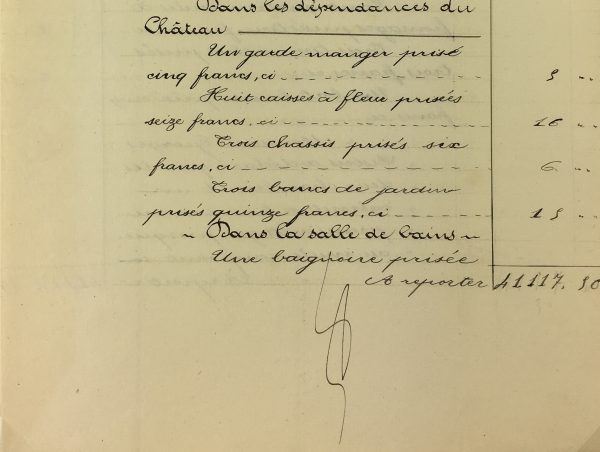 Dans les dépendances du
Château
Un garde manger prisé
cinq francs, ci 5 "
Huit caisses à fleur prisées
seize francs, ci 16 "
Trois chassis prisés six
francs, ci 6 "
Trois bancs de jardin
prisés quinze francs, ci 15 "
~ Dans la salle de bains ~
Une baignoire prisée
A reporter 41117. 50